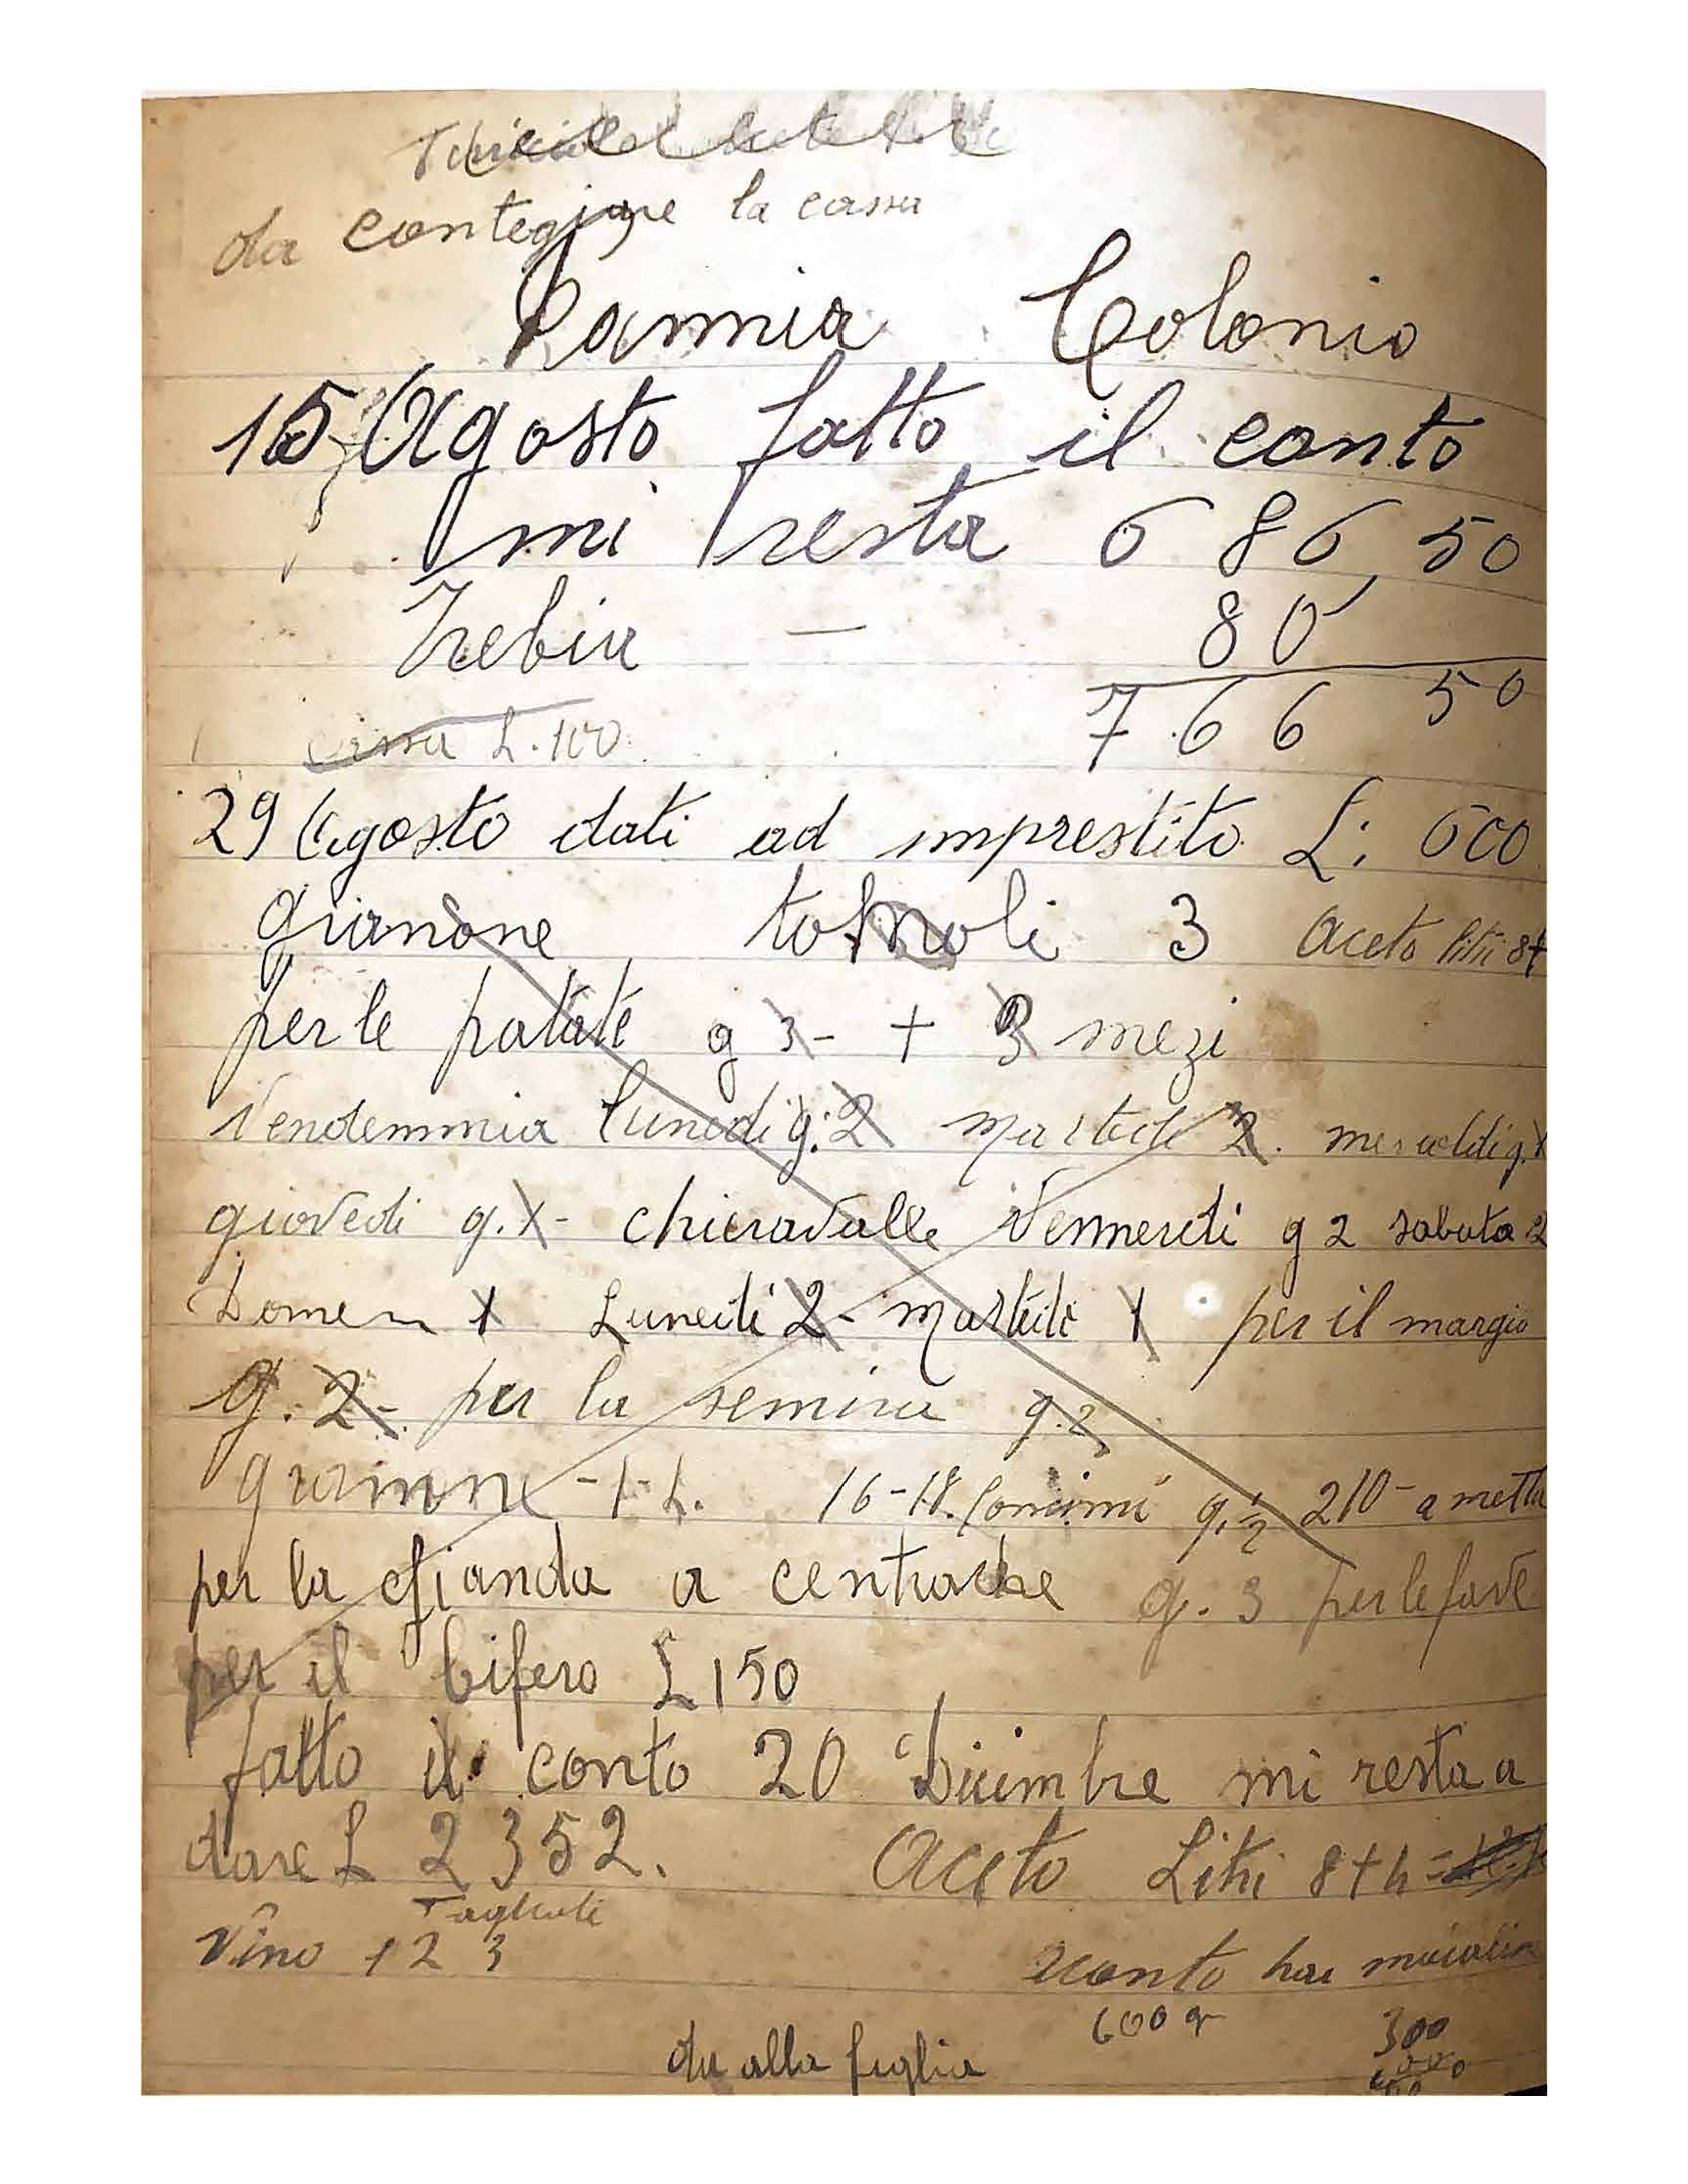 da contegiare la cassa
Pannia Colonio
15 Agosto fatto il conto
mi resta 686,50
Trebia — 80
766 50
cassa L. 100
29 Agosto dati ad imprestito L: 600
granone tomoli 3 Aceto litri 8+
per le patate g 3- + 3 mezi
Vendemmia lunedi g: 2 martedi 2. mercoldi g. 1
giovedi g. 1- chieravalle Vennerdi g 2 sabuto 2
Domen 1 Lunedi 2- martedi 1 per il margio
g. 2- per la semina g. 2
16-18. Concimi g. ½ 210- a metta
per la ghianda a centrache g. 3 per le fave
per il bifero £ 150
fatto il conto 20 Dicimbre mi resta a
dare £ 2352. Aceto Litri 8+4=
Tagliati
Vino 1 2 3
600 g 300
da alla figlia